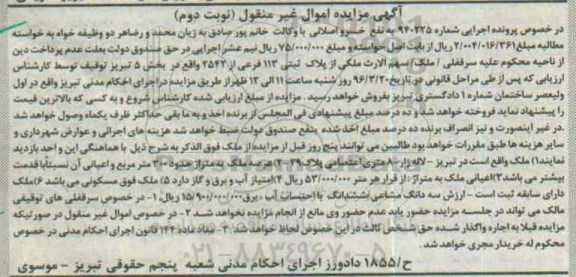 آگهی مزایده اموال غیر منقول (نوبت دوم)
در خصوص پرونده اجرایی شماره ۹۴۰۲۲۵ به نفع خسرو اصلانی با وکالت خانم پور صادق به زیان محمد و رضا هر دو وظیفه خواه به خواسته
مطالبه مبلغ ۲/۰۰۴/۰۱۶/۳۶۱ ریال از بابت اصل خواسته و مبلغ ۷۵/۰۰۰/۰۰۰ ریال نیم عشر اجرایی در حق صندوق دولت بعلت عدم پرداخت دین
از ناحیه محکوم علیه سرقفلی / ملک/ سهم الارث ملکی از پلاک ثبتی ۱۱۳ فرعی از ۲۵۴۲ واقع در بخش ۵ تبریز توقیف توسط کارشناس
ارزیابی که پس از طی مراحل قانونی در تاریخ ۹۶/۳/۲۰ روز شنبه ساعت ۱۱ الی ۱۲ ظهر از طریق مزایده در اجرای احکام مدنی تبریز واقع در اول
ولیعصر ساختمان شماره ۱ دادگستری تبریز بفروش خواهد رسید. مزایده از مبلغ ارزیابی شده کارشناس شروع و به کسی که بالاترین قیمت
را پیشنهاد نماید فروخته خواهد شد و ده درصد مبلغ پیشنهادی فی المجلس از برنده اخذ و به ما بقی حداکثر ظرف یکماه وصول خواهد شد
.در غیر اینصورت و نیز انصراف برنده ده درصد مبلغ اخذ شده بنفع صندوق دولت ضبط خواهد شد هزینه های اجرائی و عوارض شهرداری و
سایر هزینه ها طبق مقررات خواهد بود طالبین می توانند پنج روز قبل از مزایده از ملک فوق الذکر به شرح ذیل با هماهنگی این واحد بازدید
نمایند۱) ملک واقع است در تبریز - لاله زار - ۸ متری اعتصامی پلاک ۲۹-۲)عرصه ملک به متراژ حدود ۲۰۰ متر مربع و اعیانی آن نسبتاً با قدمت
بیشتر می باشد۳)اعیانی ملک به متراژ : از قرار هر متر ۵۳/۰۰۰/۰۰۰ ریال ۴)امتیاز آب و برق و گاز دارد ۵) ملک فوق مسکونی می باشد ۶)ملک
دارای سابقه ثبت است - ارزش سه دانگ مشاعی اششدانگ با احتساب آب ، برق ۱۵/۹۰۰/۰۰۰/۰۰۰ ریال ۱- در خصوص سرقفلی های توقیفی
مالک می تواند در جلسه مزایده حضور یابد عدم حضور وی مانع از انجام مزایده نخواهد شد ۲- در خصوص اموال غیر منقول در صورتیکه
مزایده قبلا به اجاره واگذار شده حق شخص ثالث در این خصوص لحاظ خواهد شد ۳- بنداد ماده ۱۴۴ قانون اجرای احکام مدنی در خصوص
محکوم له خریدار مجری خواهد شد.
ح/۱۸۵۵ دادورز اجرای احکام مدنی شعبه پنجم حقوقی تبریز - موسوی
۰۲۱-۸۸۳۴۹۶۷۰-۵